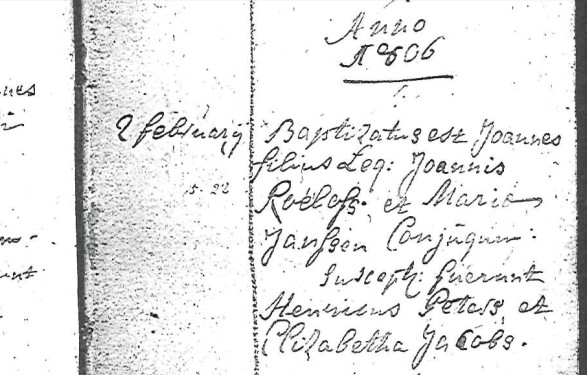 Anno
1806
2 february Baptizatus est Joannes
filius Leg: Joannis
5-22 Roelofs et Maria
Janssen Conjugum:
Suscept: fuerunt
Henricus Peters et
Elizabetha Jacobs.